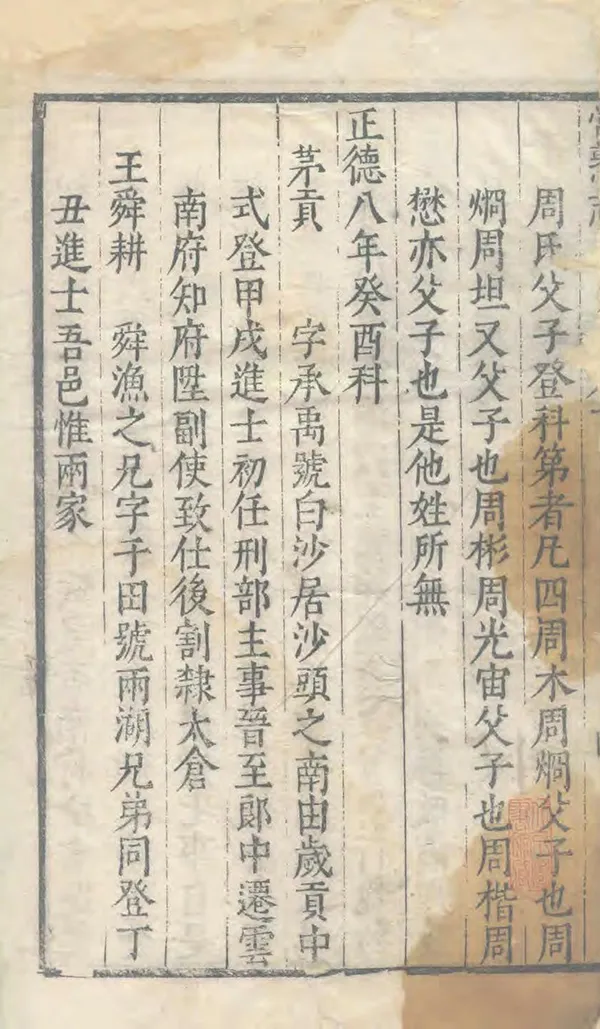 周氏父子登科第者凡四周木周烱父子也周
烱周坦又父子也周彬周光宙父子也周楷周
懋亦父子也是他姓所無
正德八年癸酉科
茅貢　字承禹號白沙居沙頭之南由歲貢中
式登甲戌進士初任刑部主事晉至郎中遷雲
南府知府陞副使致仕後割隸太倉
王舜耕　舜漁之兄字于田號雨湖兄弟同登丁
丑進士吾邑惟兩家